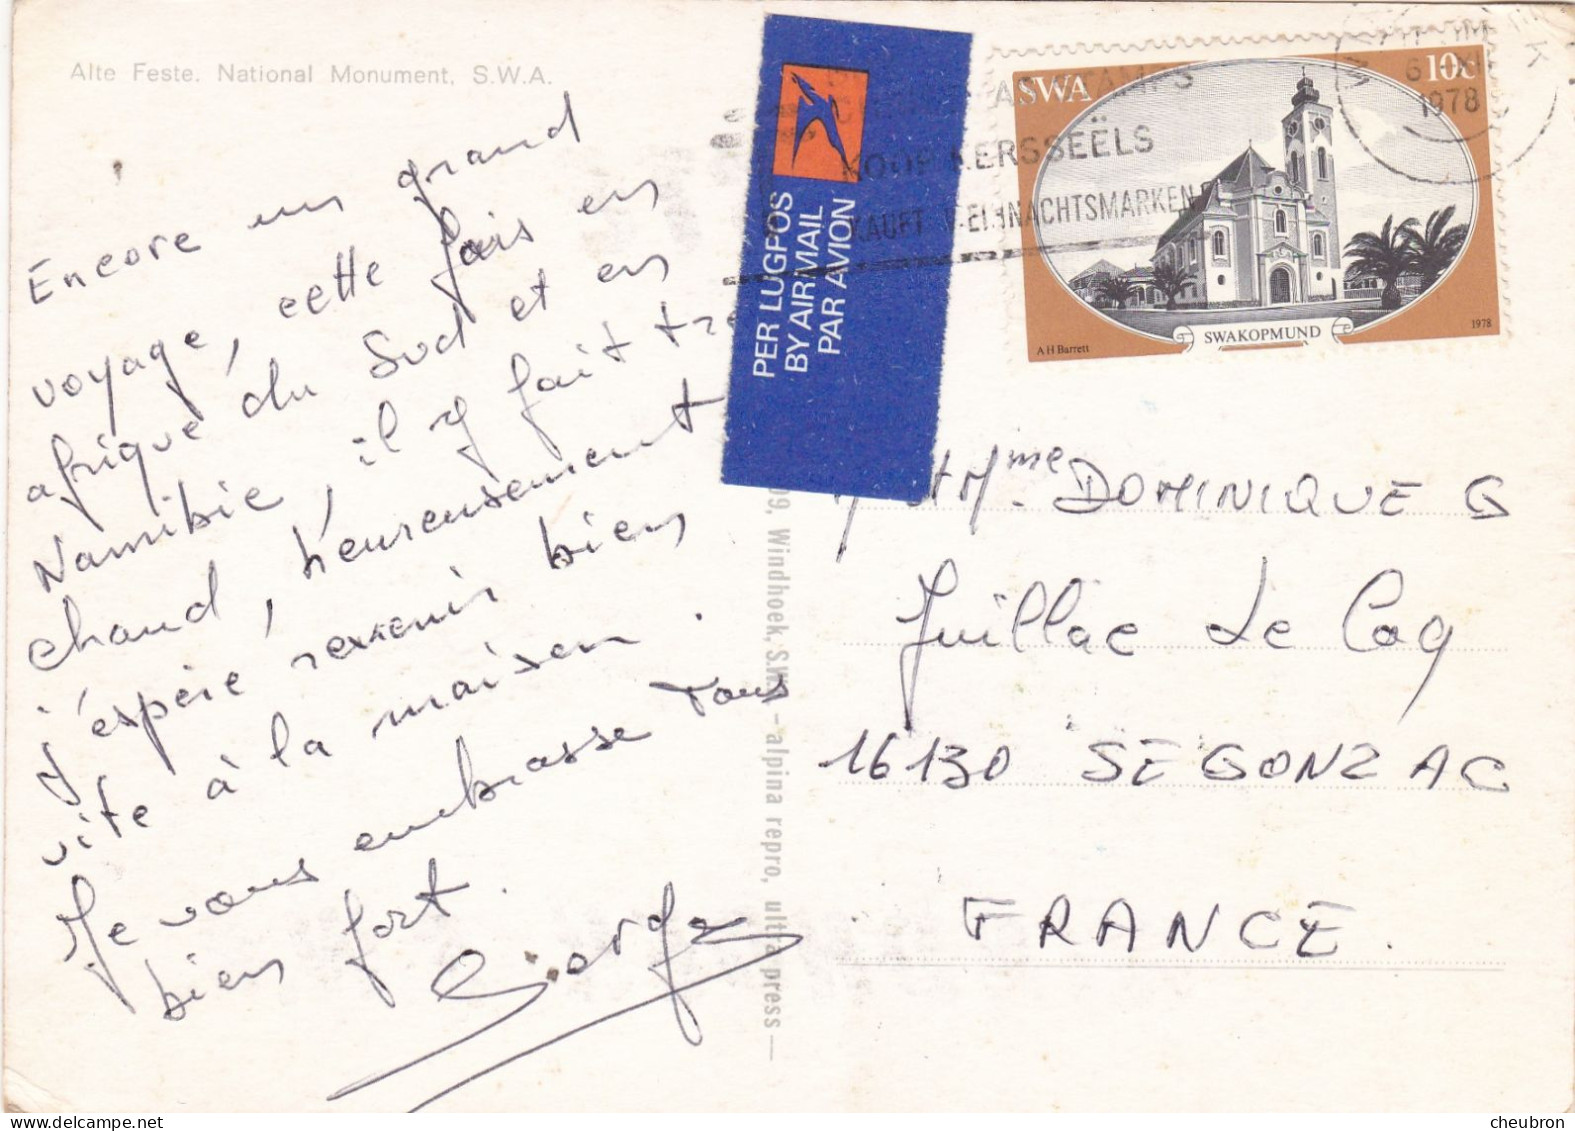 Alte Feste. National Monument, S.W.A.
Encore un grand
voyage, cette fois en
afrique du Sud et en
Namibie, il y fait
chaud, heureusement
j'espère revenir bien
vite à la maison.
Je vous embrasse tous
bien fort.
Georges
PER LUGPOS
BY AIRMAIL
PAR AVION
AS STAMPS
KOOP KERSSEËLS
KAUFT WEIHNACHTSMARKEN
6 XI
1978
SWA
10c
SWAKOPMUND
A H Barrett
1978
99, Windhoek, S.W. - alpina repro, ultra press —
Mme DOMINIQUE G
Juillac Le Coq
16130 SEGONZAC
FRANCE.
cheubron